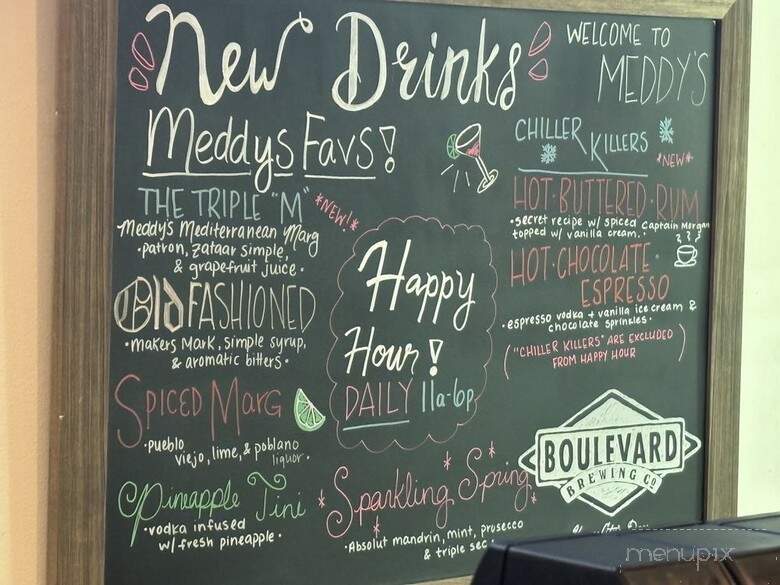 New Drinks
WELCOME TO
MEDDY'S
Meddys Favs!
THE TRIPLE "M"
*NEW!*
Meddy's Mediterranean Marg
•patron, zataar simple,
& grapefruit juice•
Old FASHIONED
•makers Mark, simple syrup,
& aromatic bitters•
SPICED MARG
•pueblo
viejo, lime, & poblano
liquor•
Pineapple Tini
•vodka infused
w/ fresh pineapple•
Happy
Hour!
DAILY 11a-6p
*Sparkling Spring*
•Absolut mandrin, mint, prosecco
& triple sec•
CHILLER
KILLERS
*NEW*
HOT•BUTTERED•RUM
•secret recipe w/ spiced Captain Morgan
topped w/ vanilla cream.•
HOT•CHOCOLATE•
ESPRESSO
•espresso vodka + vanilla ice cream &
chocolate sprinkles•
("CHILLER KILLERS" ARE EXCLUDED
FROM HAPPY HOUR)
BOULEVARD
BREWING CO
menupix